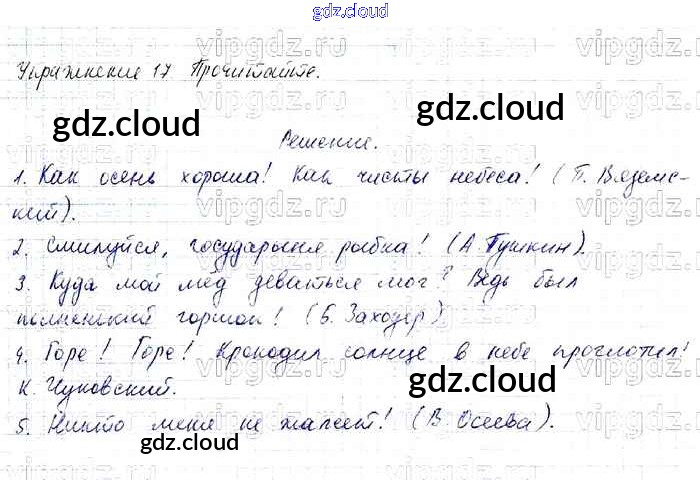 gdz.cloud
Упражнение 17 Прочитайте.
gdz.cloud
gdz.cloud
Решение.
1. Как осень хороша! Как чисты небеса! (П. Вяземс-
кий).
2. Смилуйся, государыня рыбка! (А. Пушкин).
3. Куда мой мёд деваться мог? Ведь был
полненький горшок! (Б. Заходер)
4. Горе! Горе! Крокодил солнце в небе проглотил!
К. Чуковский.
gdz.cloud
5. Никто меня не жалеет! (В. Осеева).
gdz.cloud
gdz.cloud